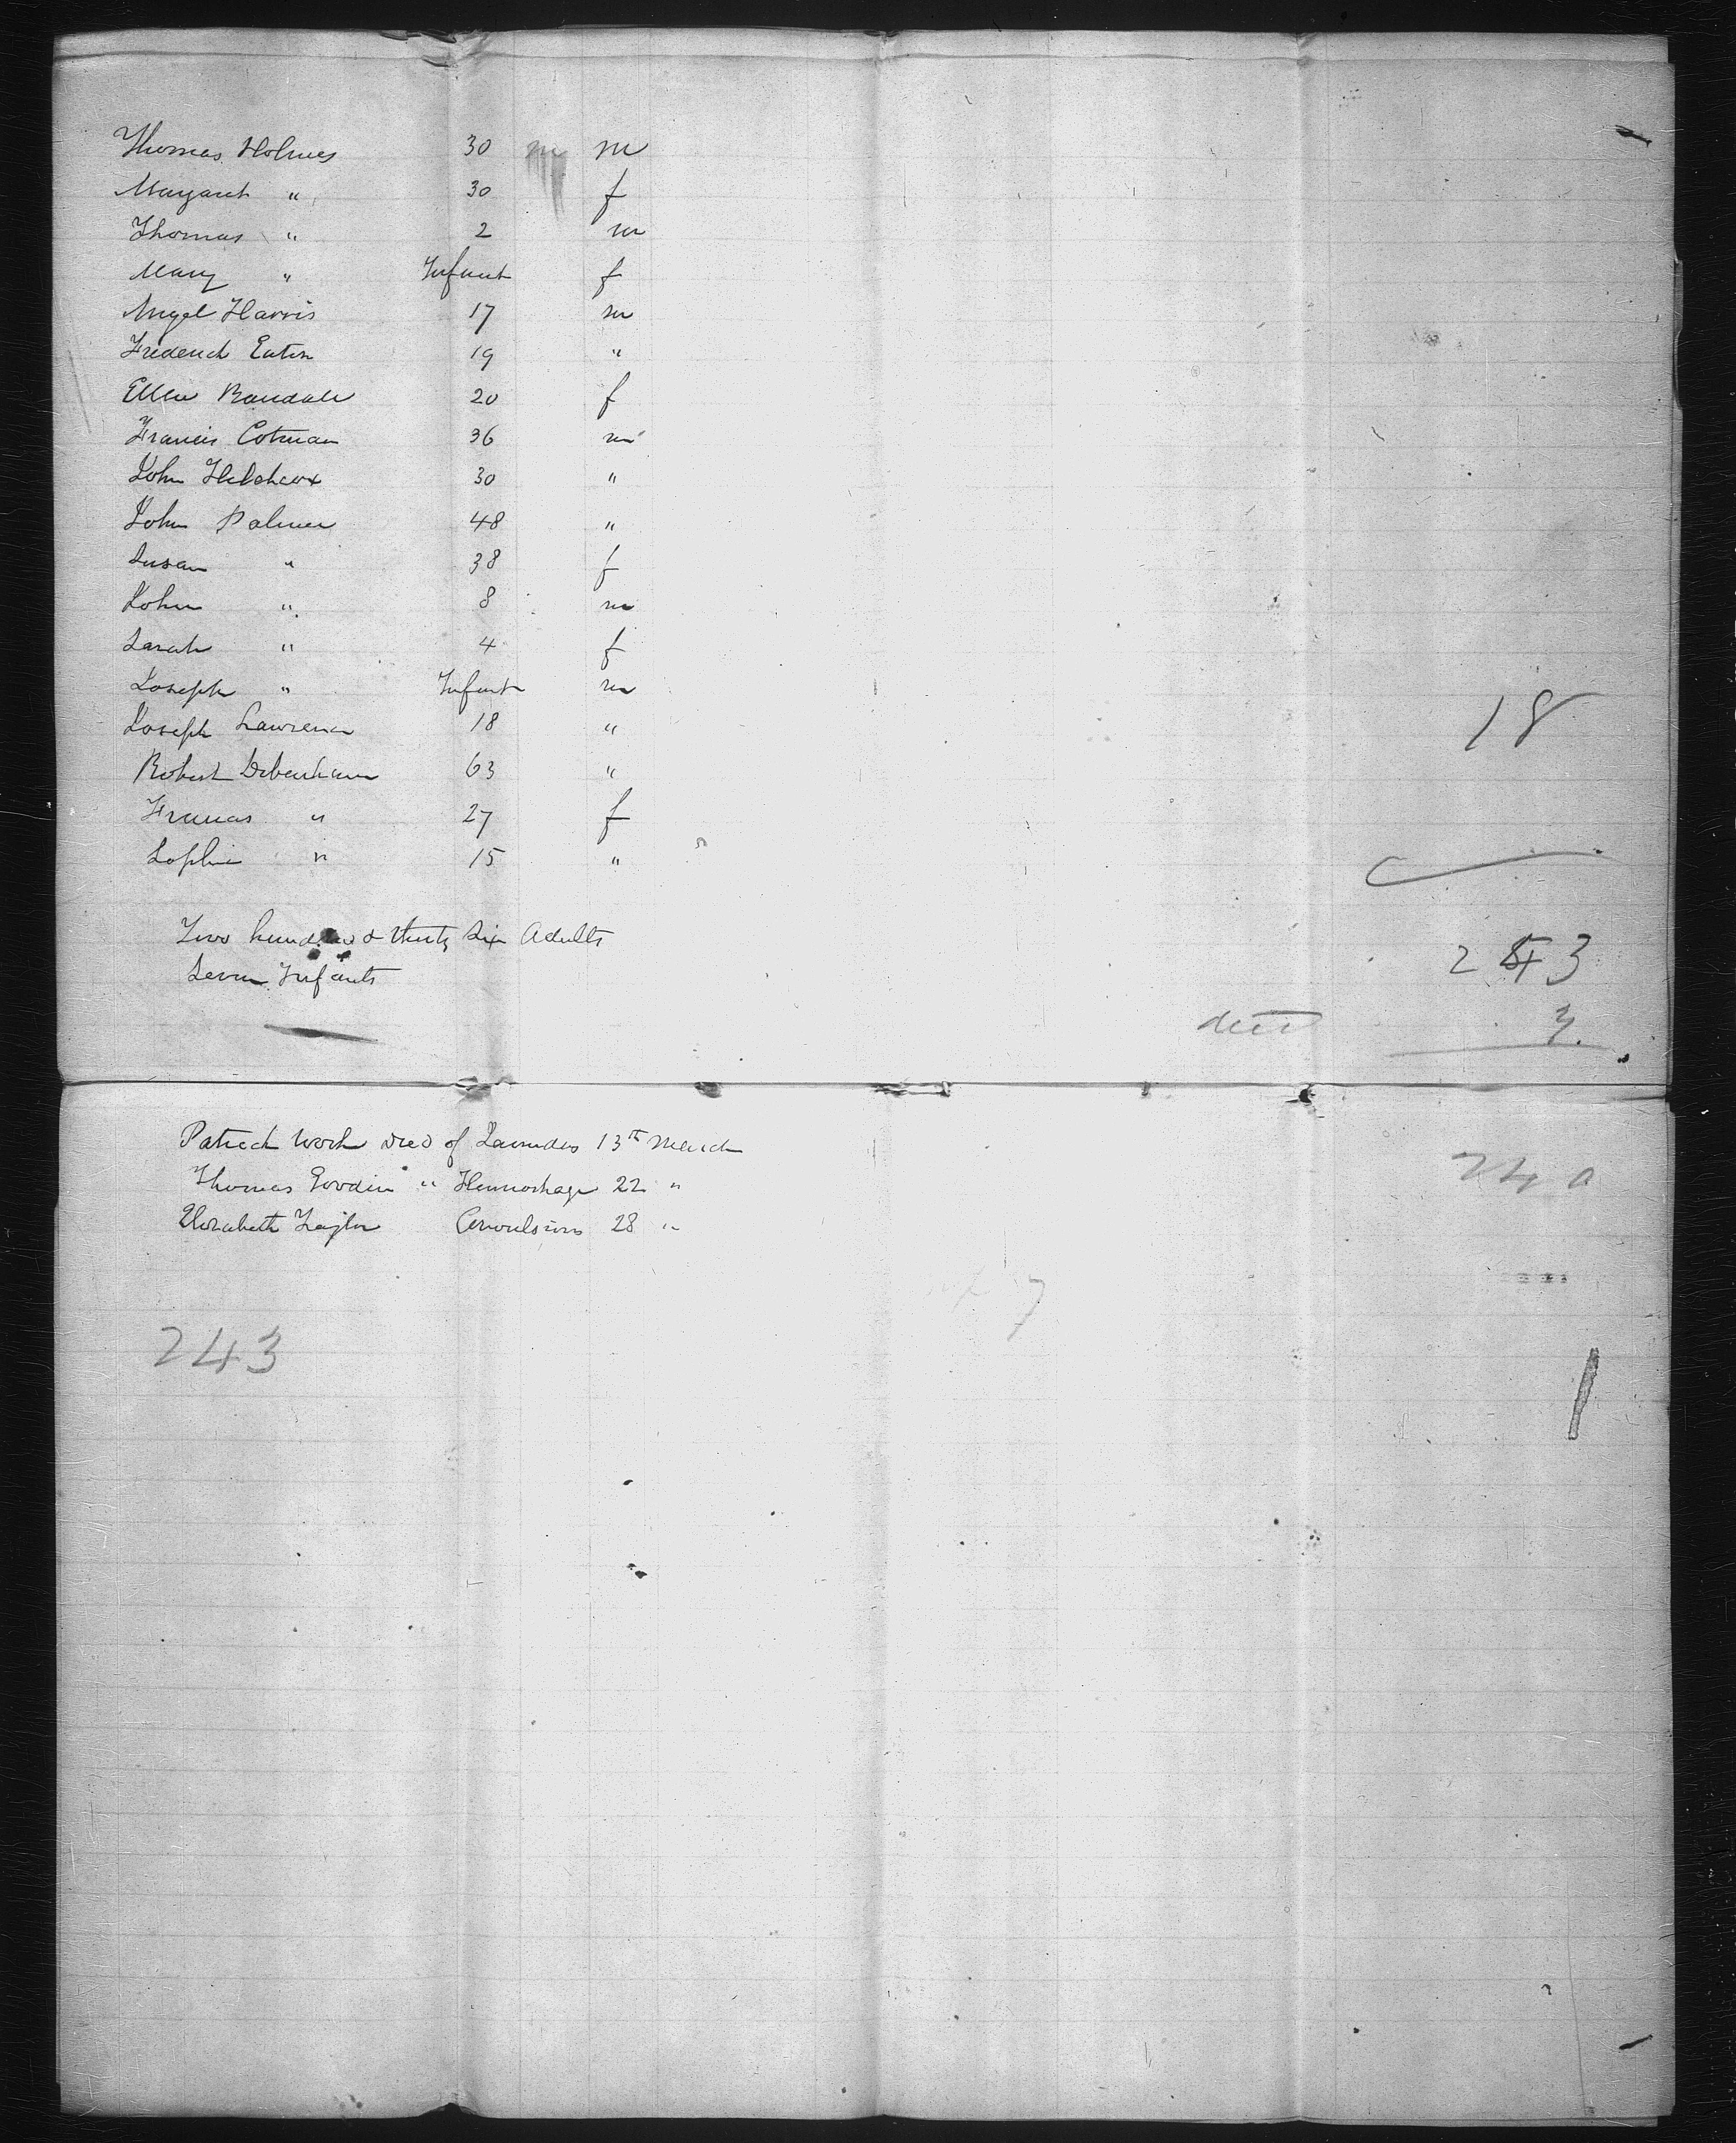 Thomas Holmes 30 m m
Margaret " 30 f
Thomas " 2 m
Mary " Infant f
Angel Harris 17 m
Frederick Eaton 19 "
Ellen Randall 20 f
Francis Cotman 36 m
John 30 "
John Palmer 48 "
Susan " 38 f
John " 8 m
Sarah " 4 f
Joseph " Infant m
Joseph Lawrence 18 " 18
Robert Debenham 63 "
Frances " 27 f
Sophia " 15 "
Two hundred & thirty Six Adults 243
Seven Infants
3
Patrick Work died of Jaundes 13th March
Thomas Goodin " Hemorhage 22 " 240
Elizabeth Taylor Convulsions 28 "
7
243